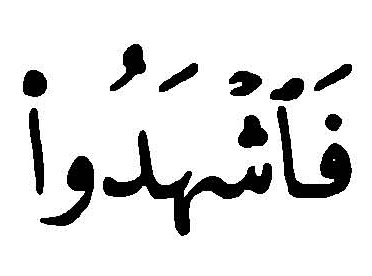 فَٱشۡهَدُواْ